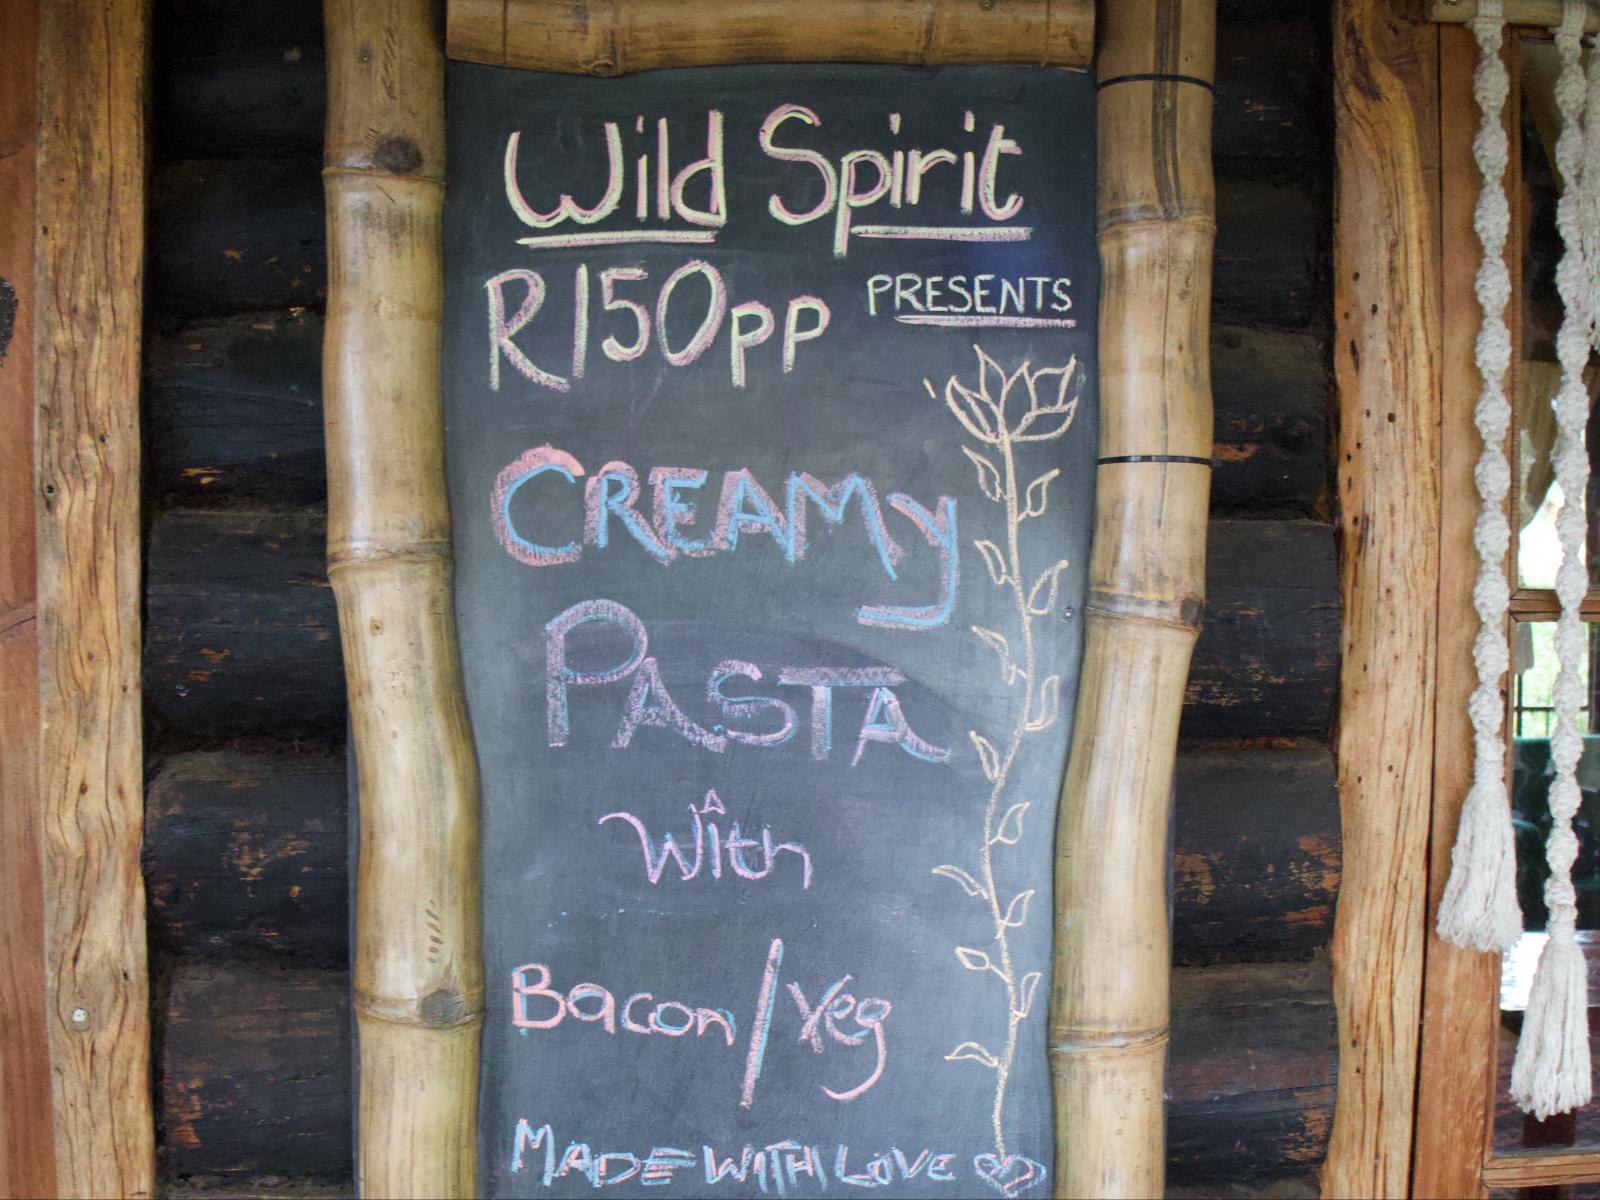 Wild Spirit
R150pp PRESENTS
CREAMy
PASTA
With
Bacon/Veg
MADE WITH LOVE